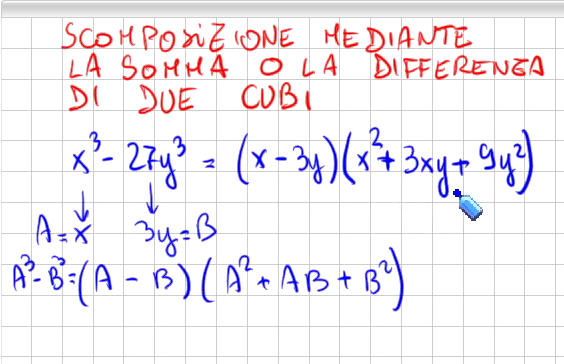 SCOMPOSIZIONE MEDIANTE
LA SOMMA O LA DIFFERENZA
DI DUE CUBI
x³ - 27y³ = (x - 3y)(x² + 3xy + 9y²)
↓ ↓
A = x 3y = B
A³ - B³ = (A - B)(A² + AB + B²)